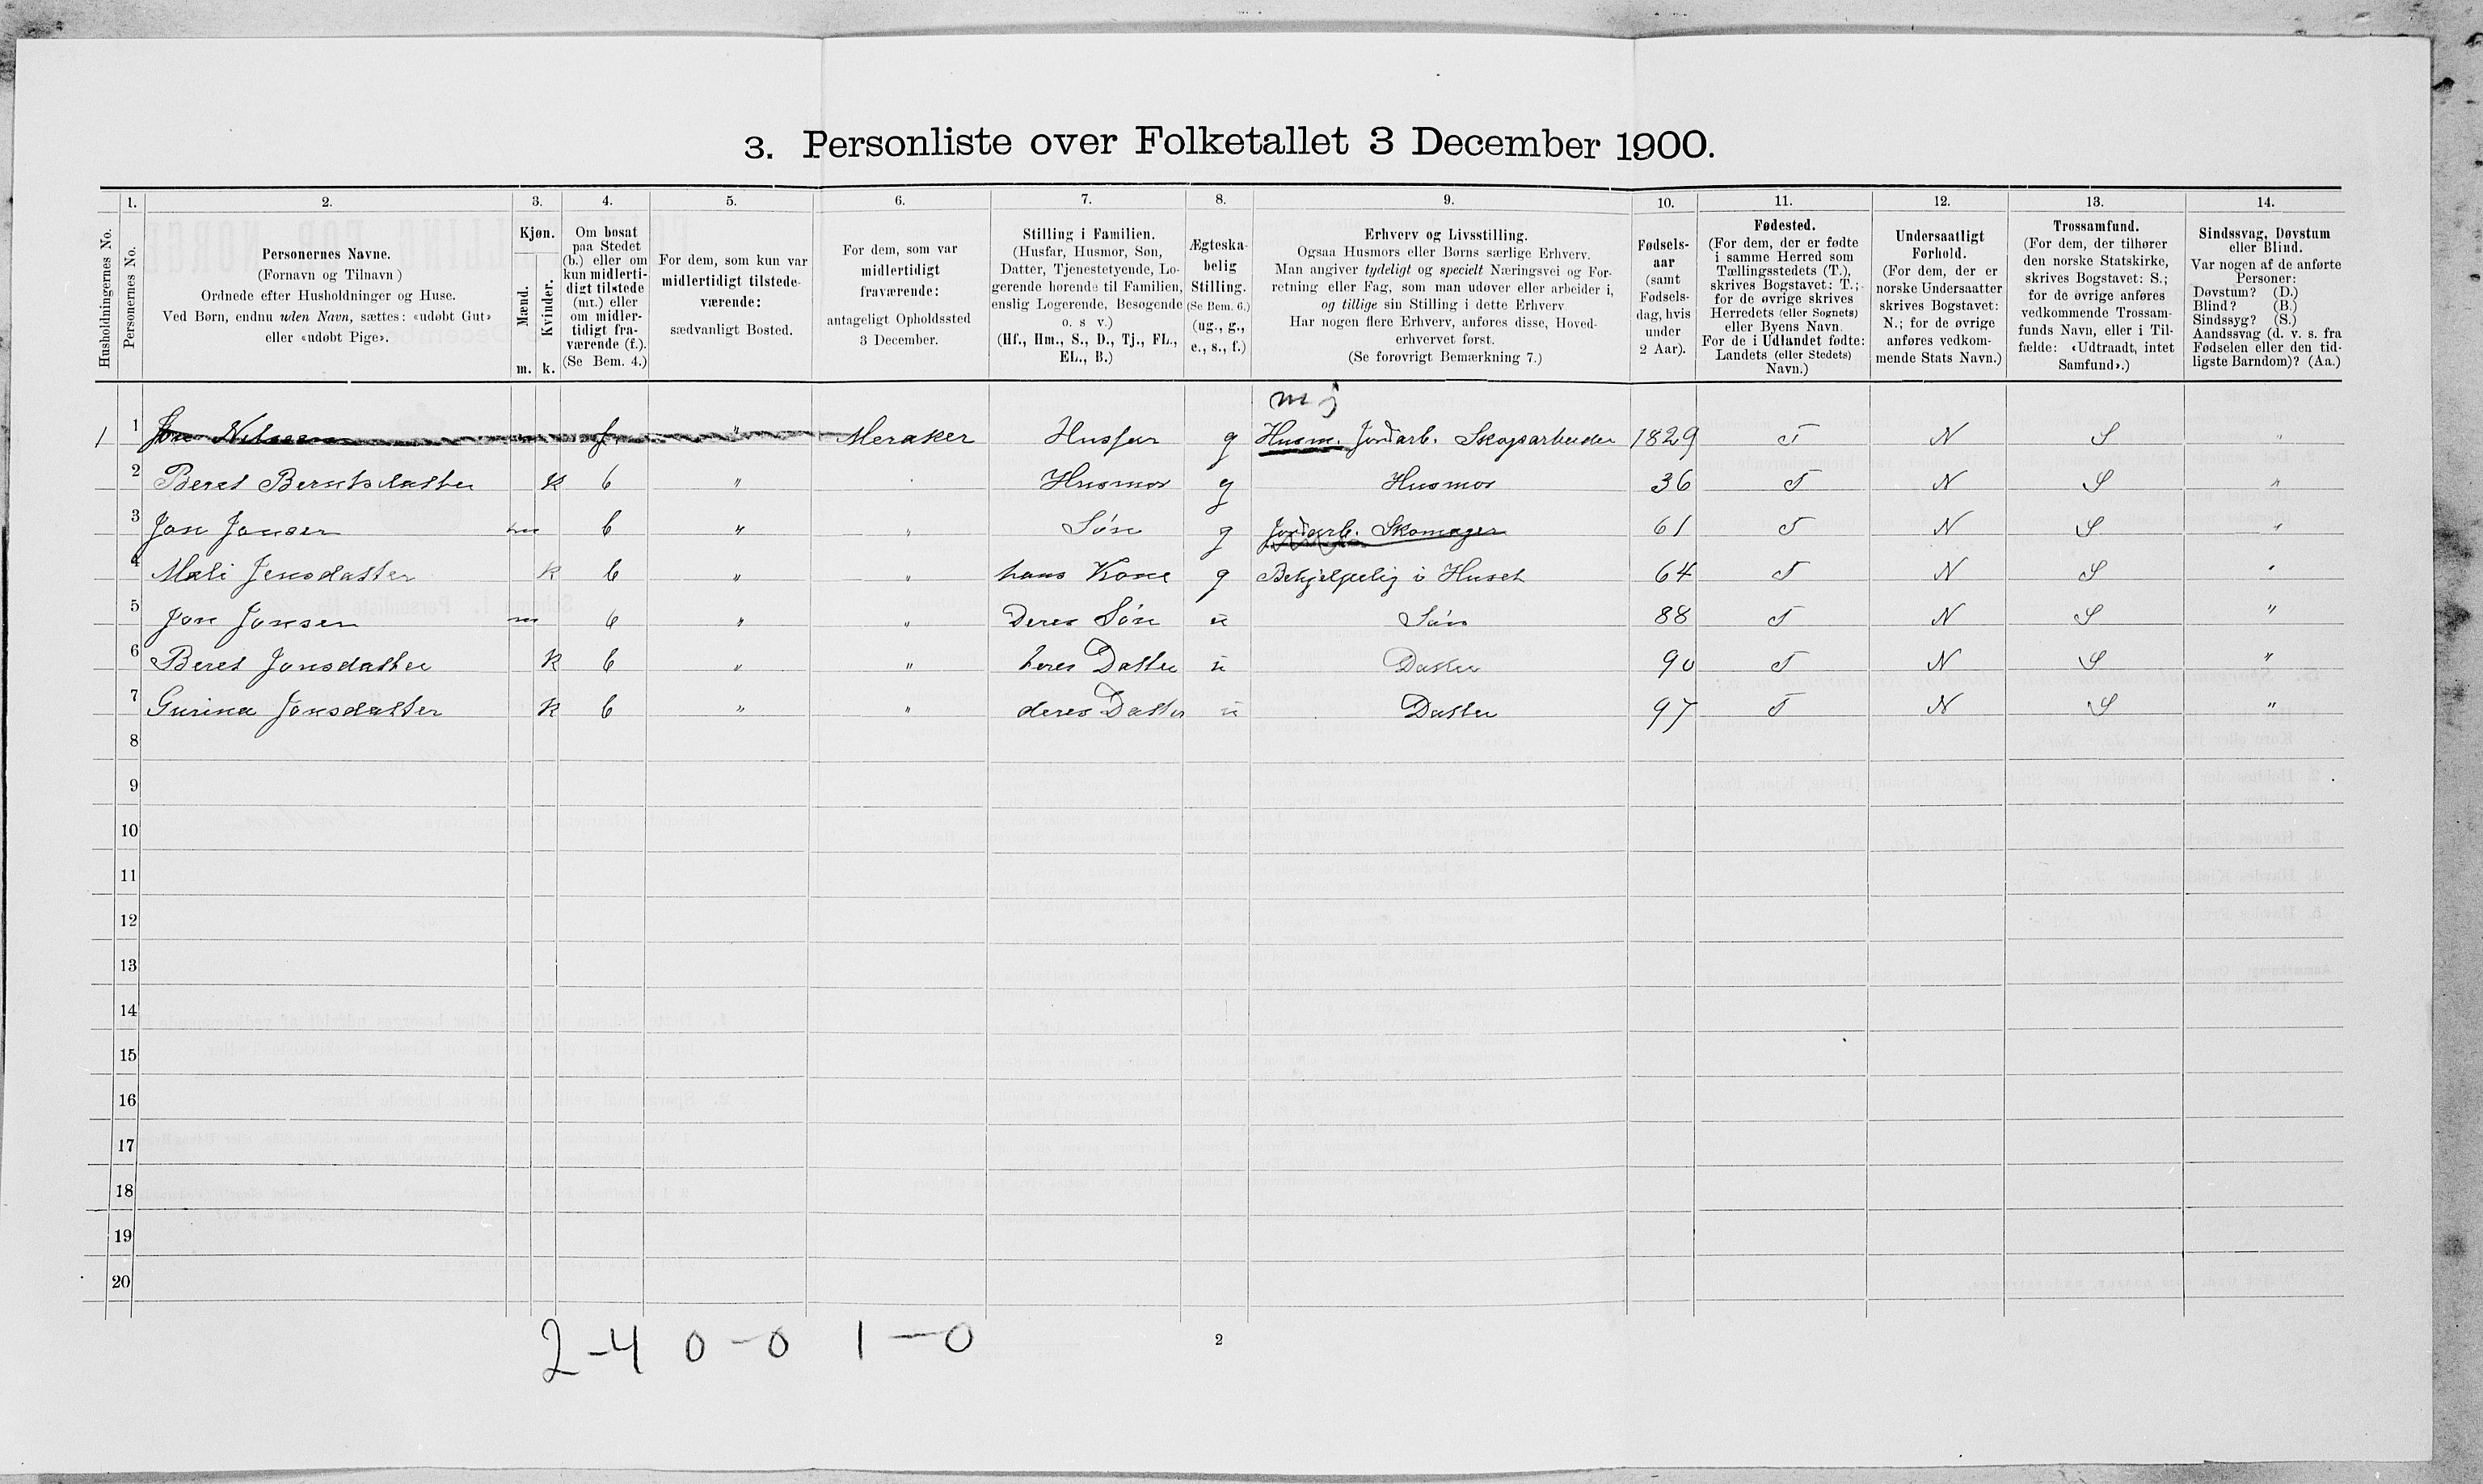 3. Personliste over Folketallet 3 December 1900.
Husholdningernes No.
1.
Personernes No.
2.
Personernes Navne.
(Fornavn og Tilnavn)
Ordnede efter Husholdninger og Huse.
Ved Børn, endnu uden Navn, sættes: «udøbt Gut»
eller «udøbt Pige».
3.
Kjøn.
Mænd.
Kvinder.
m. k.
4.
Om bosat
paa Stedet
(b.) eller om
kun midlerti-
digt tilstede
(mt.) eller
om midler-
tidigt fra-
værende (f.).
(Se Bem. 4.)
5.
For dem, som kun var
midlertidigt tilstede-
værende:
sædvanligt Bosted.
6.
For dem, som var
midlertidigt
fraværende:
antageligt Opholdssted
3 December.
7.
Stilling i Familien.
(Husfar, Husmor, Søn,
Datter, Tjenestetyende, Lo-
gerende hørende til Familien,
enslig Logerende, Besøgende
o. s v.)
(Hf., Hm., S., D., Tj., FL.,
EL., B.)
8.
Ægteska-
belig
Stilling.
(Se Bem. 6.)
(ug., g.,
e., s., f.)
9.
Erhverv og Livsstilling.
Ogsaa Husmors eller Børns særlige Erhverv.
Man angiver tydeligt og specielt Næringsvei og For-
retning eller Fag, som man udøver eller arbeider i,
og tillige sin Stilling i dette Erhverv
Har nogen flere Erhverv, anføres disse, Hoved-
erhvervet først.
(Se forøvrigt Bemærkning 7.)
10.
Fødsels-
aar
(samt
Fødsels-
dag, hvis
under
2 Aar).
11.
Fødested.
(For dem, der er fødte
i samme Herred som
Tællingsstedets (T.),
skrives Bogstavet: T.;
for de øvrige skrives
Herredets (eller Sognets)
eller Byens Navn.
For de i Udlandet fødte:
Landets (eller Stedets)
Navn.)
12.
Undersaatligt
Forhold.
(For dem, der er
norske Undersaatter
skrives Bogstavet:
N.; for de øvrige
anføres vedkom-
mende Stats Navn.)
13.
Trossamfund.
(For dem, der tilhører
den norske Statskirke,
skrives Bogstavet: S.;
for de øvrige anføres
vedkommende Trossam-
funds Navn, eller i Til-
fælde: «Udtraadt, intet
Samfund».)
14.
Sindssvag, Døvstum
eller Blind.
Var nogen af de anførte
Personer:
Døvstum? (D.)
Blind? (B.)
Sindssyg? (S.)
Aandssvag (d. v. s. fra
Fødselen eller den tid-
ligste Barndom)? (Aa.)
mj
1 1 Jon Nilssen m f. " Meraker Husfar g Husm. Jordarb. Skogsarbeider 1829 T N S "
2 Beret Berntsdatter k b " Husmor g Husmor 36 T N S "
3 Jon Jonsen m b " " Søn g Jordarb. Skomager 61 T N S "
4 Mali Jensdatter k b " " hans Kone g Behjelpelig i Huset 64 T N S "
5 Jon Jonsen m b " " Deres Søn u Søn 88 T N S "
6 Beret Jonsdatter k b " " deres Datter u Datter 90 T N S "
7 Gurina Jonsdatter k b " " deres Datter u Datter 97 T N S "
8
9
10
11
12
13
14
15
16
17
18
19
20
2-4 0-0 1-0
2